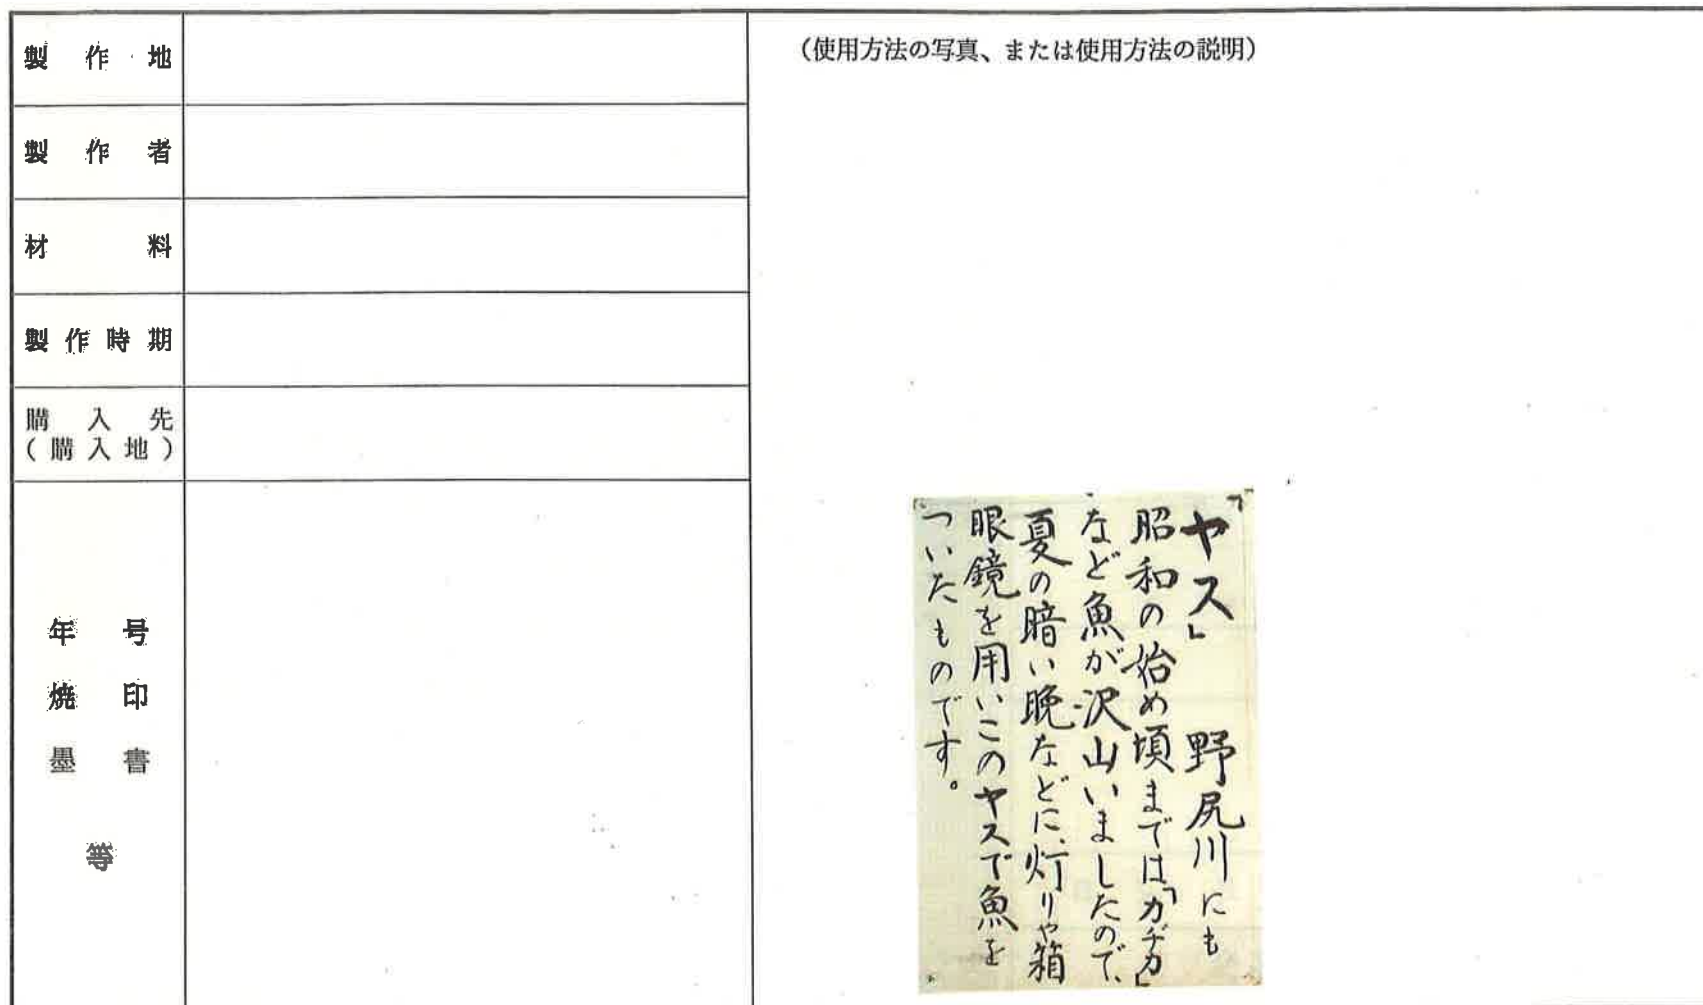 製作地
製作者
材料
製作時期
購入先
(購入地)
年号
焼印
墨書
等
(使用方法の写真、または使用方法の説明)
「ヤス」 野尻川にも
昭和の始め頃までは「カヂカ」
など魚が沢山いましたので、
夏の暗い晩などに、灯りや箱
眼鏡を用いこのヤスで魚を
ついたものです。